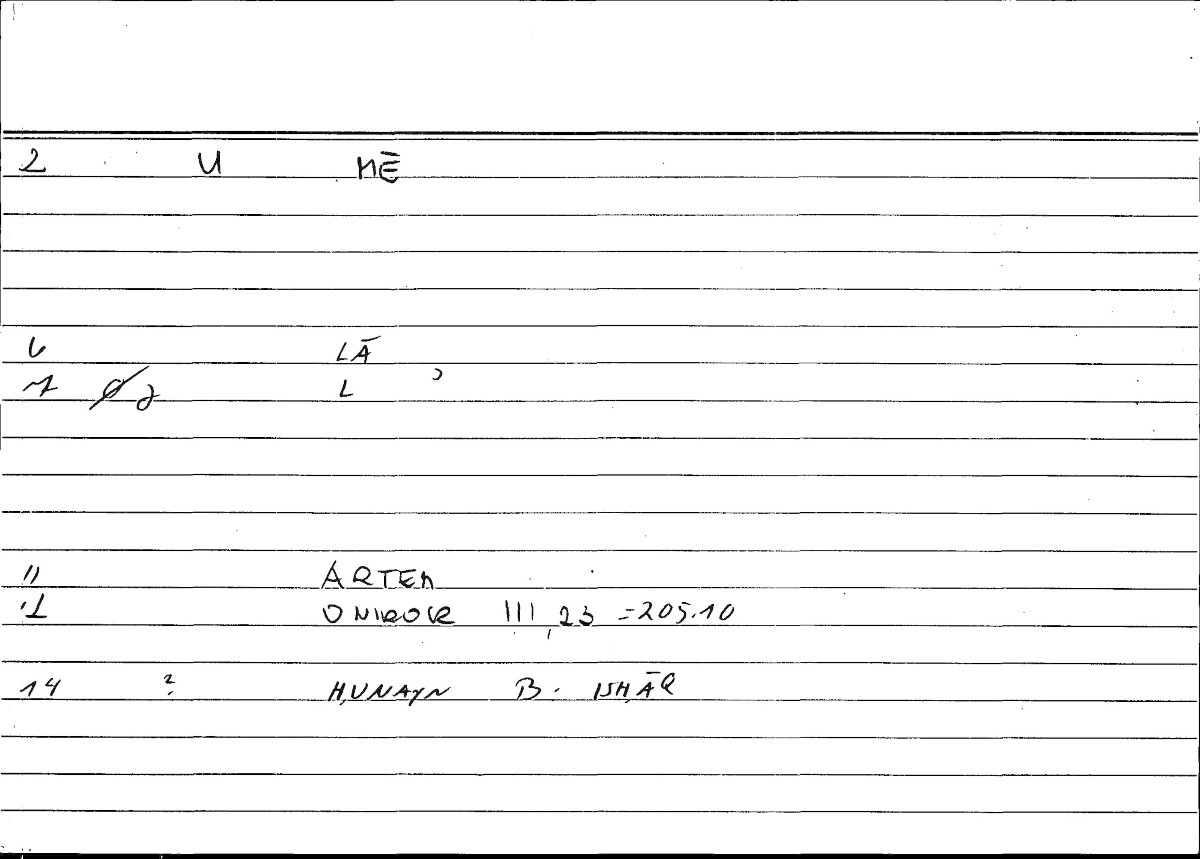 2 U MĒ
6 LĀ
7 L ʾ
11 ARTEM
12 ONIROCR III, 23 = 205.10
14 ? ḤUNAYN B. ISḤĀQ